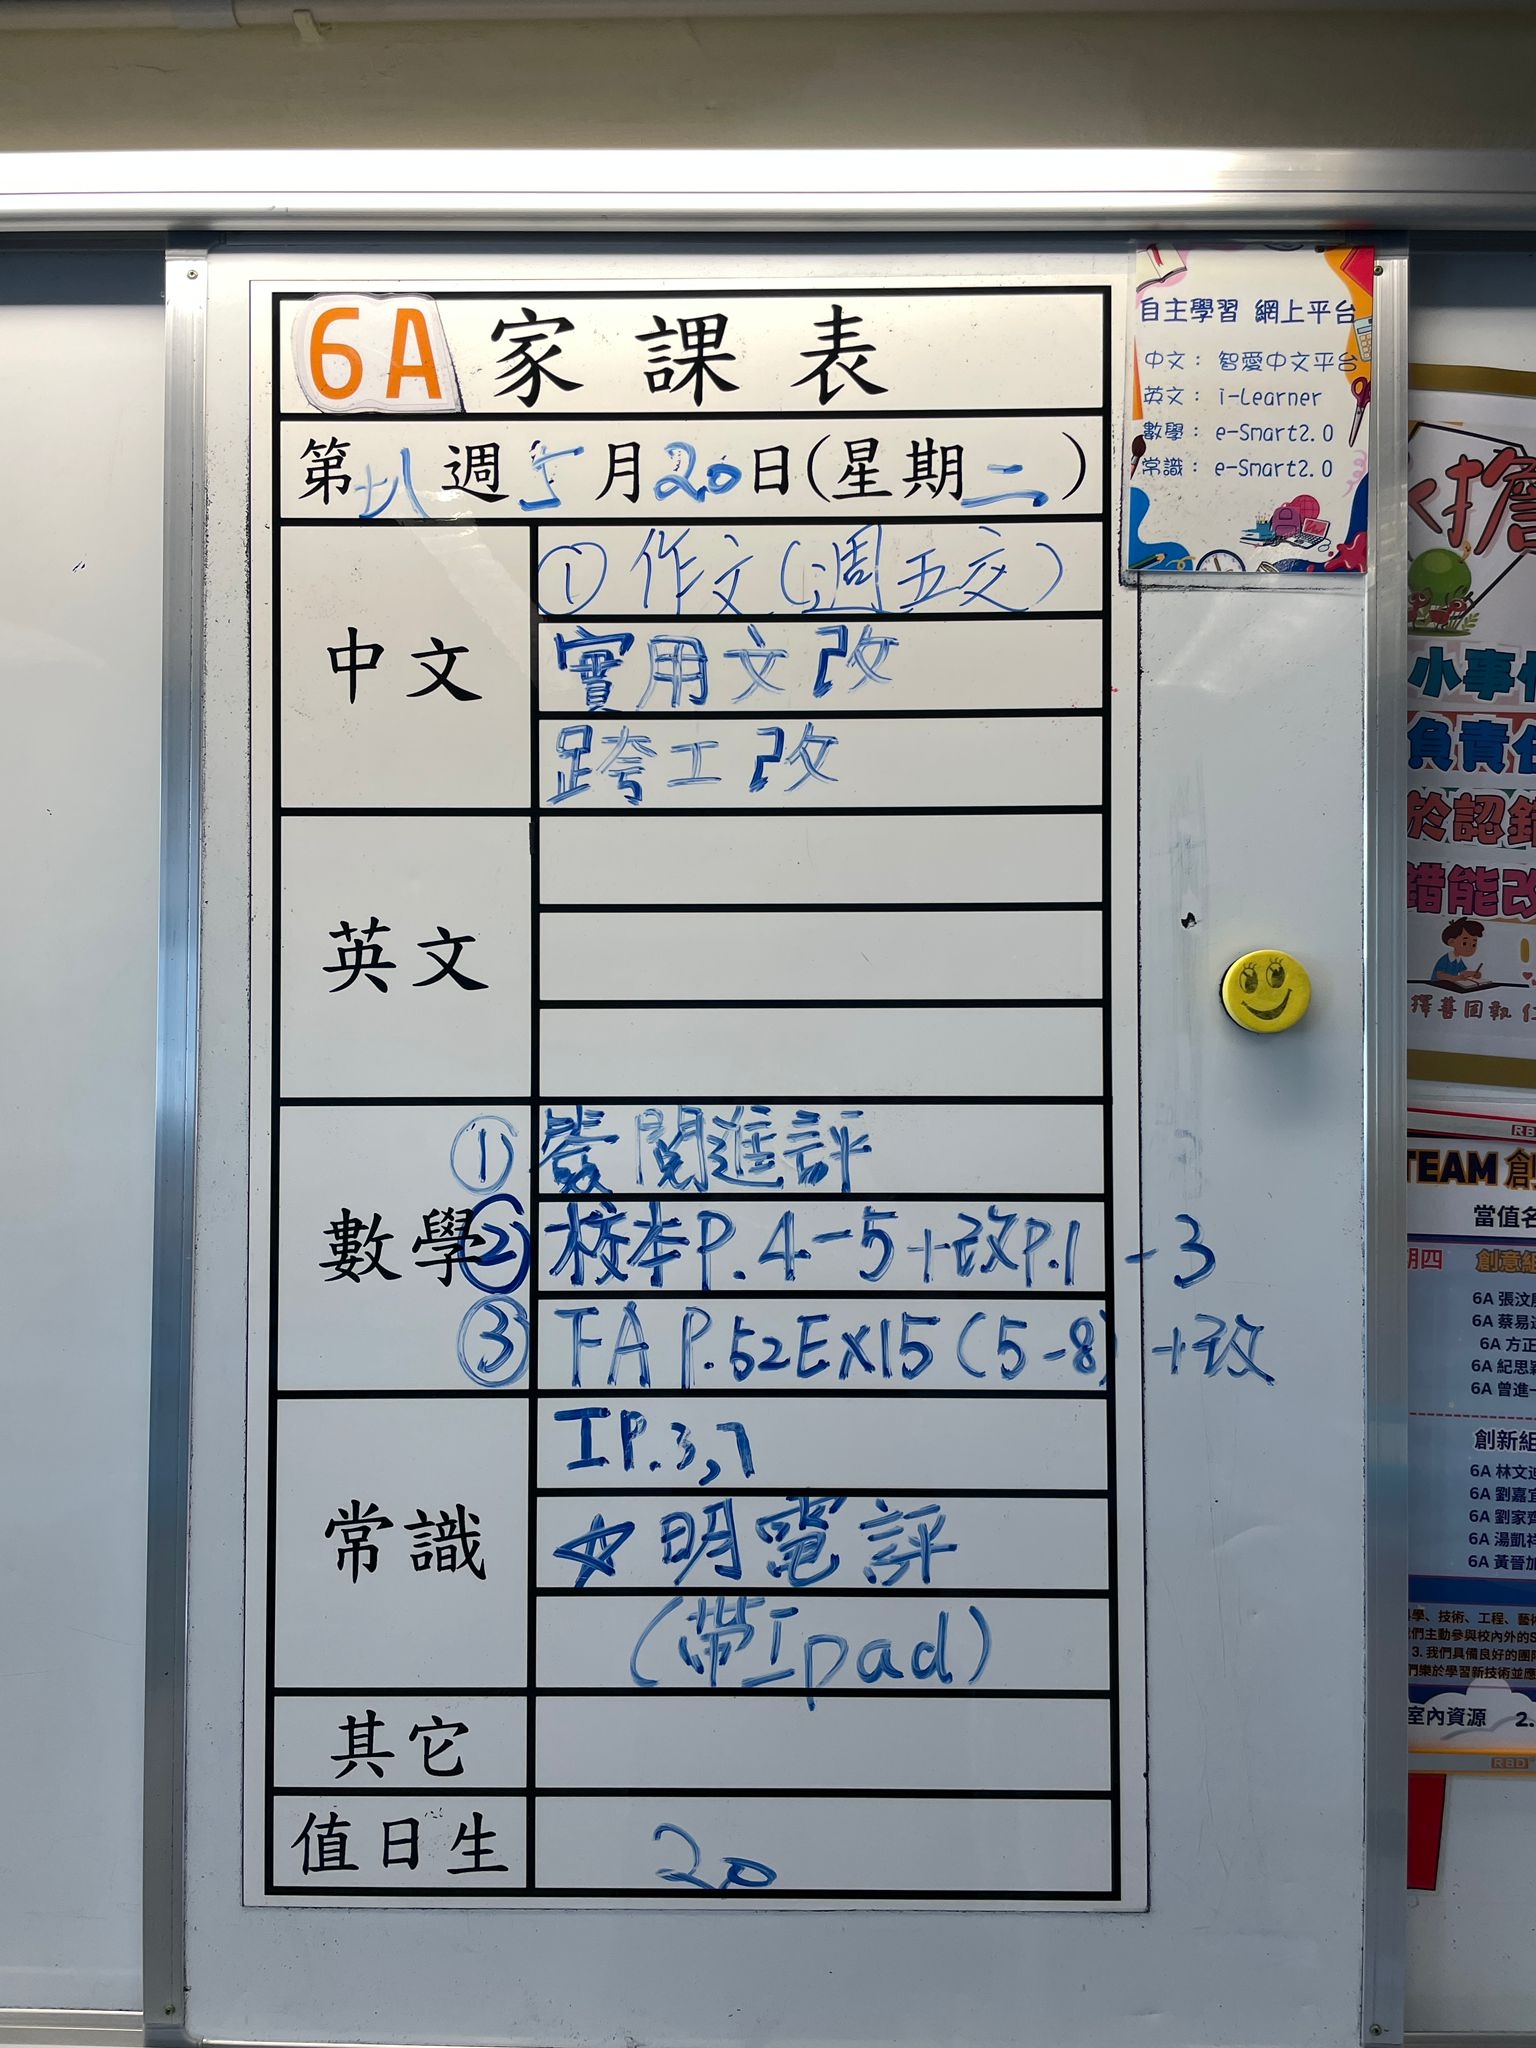 6A 家課表
第十八週 5月20日(星期二)
中文
① 作文(週五交)
實用文改
跨工改
英文
數學
① 簽閱進評
② 校本P.4-5+改P.1-3
③ FA P.52EX15(5-8)+改
常識
IP.3,7
☆明電評
(帶Ipad)
其它
值日生
20
自主學習 網上平台
中文： 智愛中文平台
英文： i-Learner
數學： e-Smart2.0
常識： e-Smart2.0
小事
負責任
於認錯
錯能改
擇善固執
TEAM 創
當值名
期四 創意組
6A 張汶
6A 蔡易
6A 方正
6A 紀思
6A 曾進
創新組
6A 林文
6A 劉嘉
6A 劉家
6A 湯凱
6A 黃晉
學、技術、工程、藝
們主動參與校內外的S
3. 我們具備良好的團
們樂於學習新技術並應
室內資源 2.
RBD